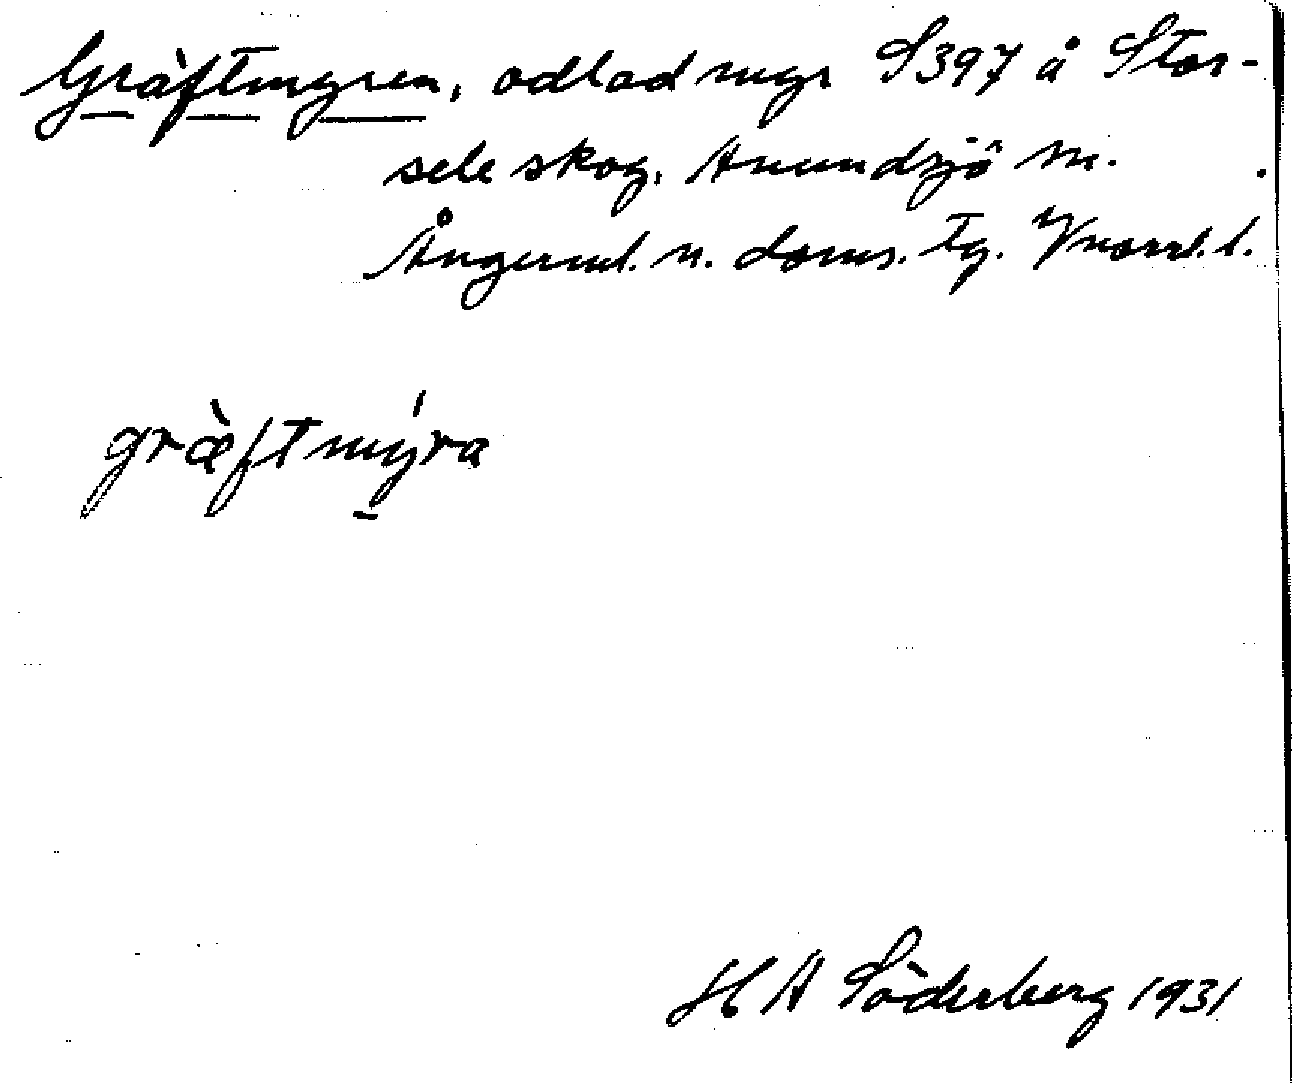 Gräftmyren, odlad myr S397 å Stor-
sele skog, Anundsjö sn.
Ångerml. n. doms. tg. Vnorrl. l.
græ̀ftmýra
H A Söderberg 1931